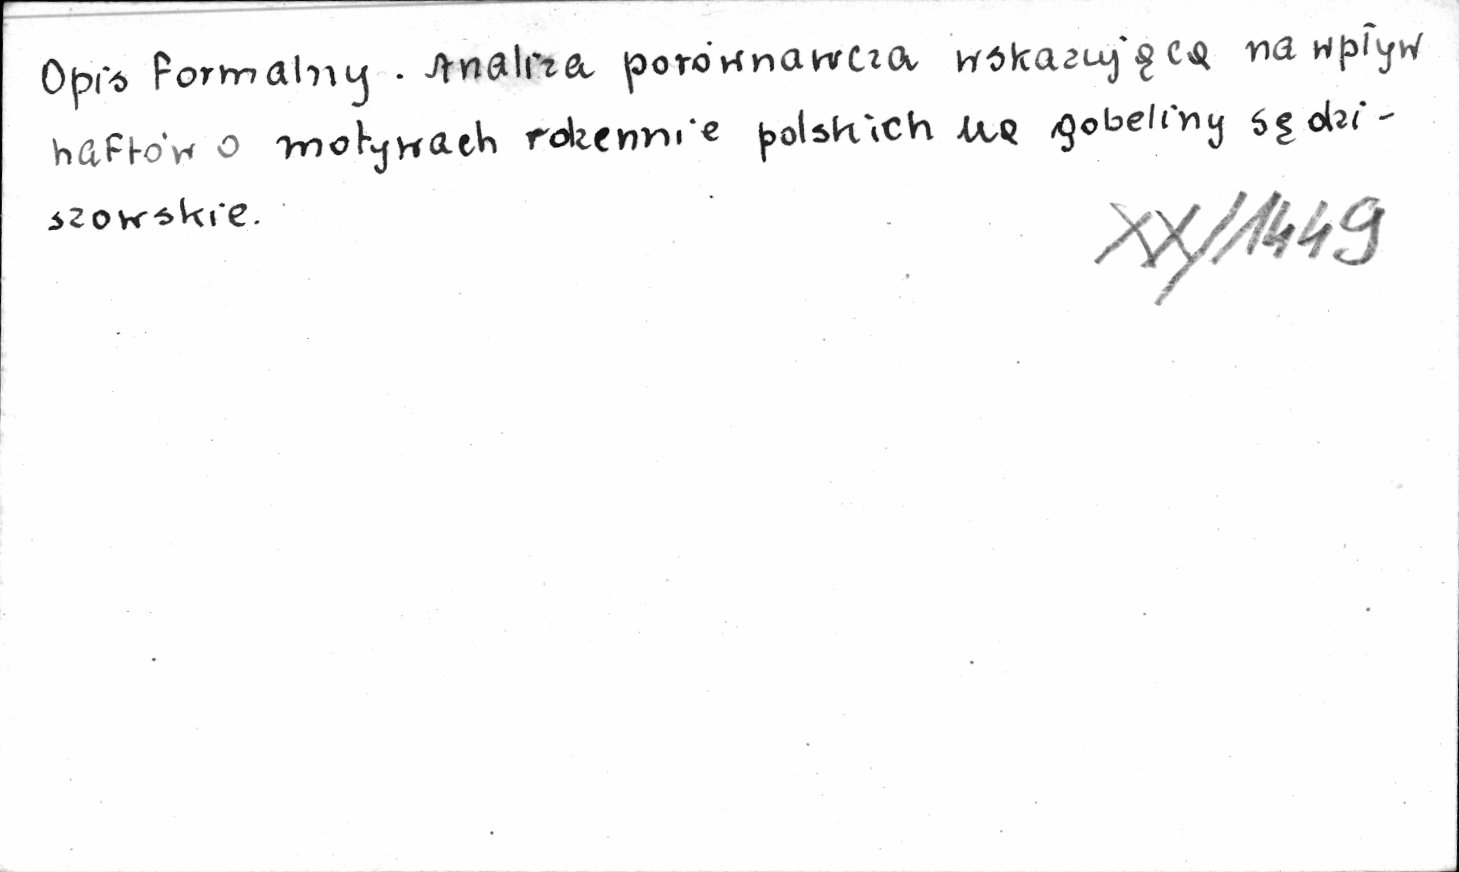 Opis formalny. Analiza porównawcza wskazująca na wpływ
haftów o motywach rdzennie polskich na gobeliny sędzi-
szowskie.
XX/1449